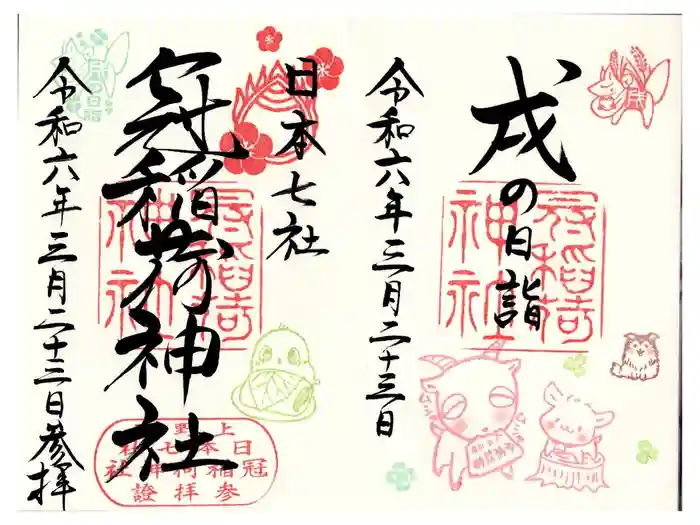 戌の日詣
令和六年三月二十三日
日本七社
冠稲荷神社
令和六年三月二十三日参拝
冠稲荷神社
冠稲荷神社
上野
日本七社
冠稲荷神社
参拝證
戌の日詣
戌